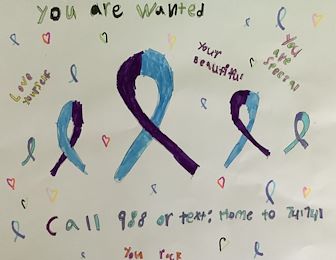 you are wanted
Your
beautiful
You
are
special
Love
Yourself
Call 988 or text: Home to 741741
You rock